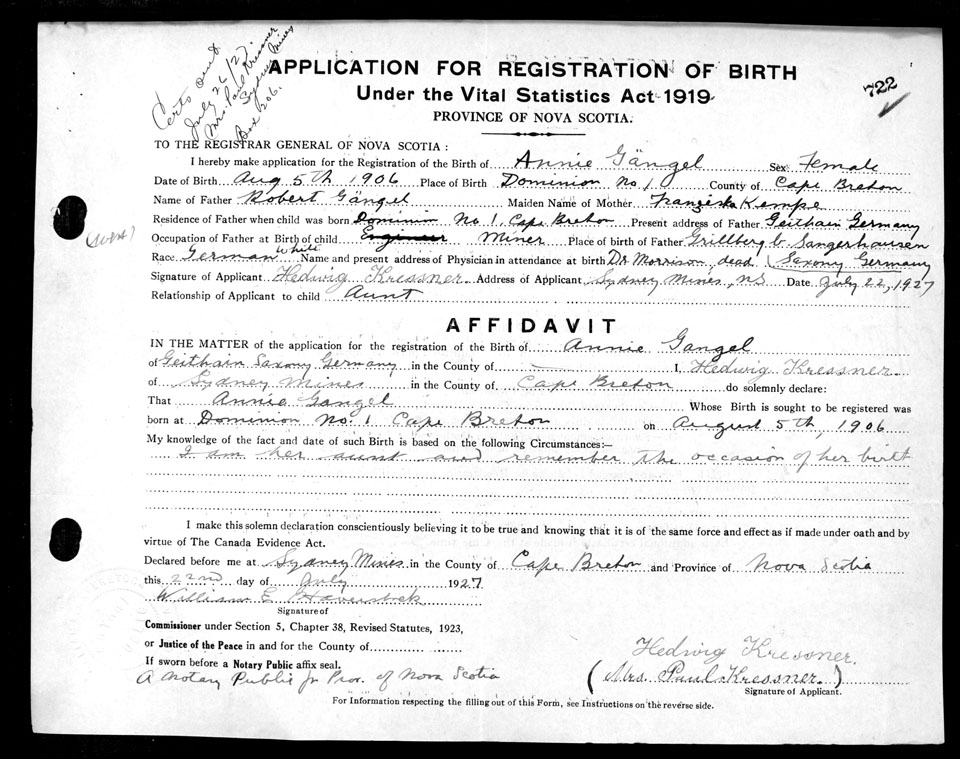 Certs sent
July 26/27
Mrs. Paul Kressner
Sydney Mines
Box 206.
722
APPLICATION FOR REGISTRATION OF BIRTH
Under the Vital Statistics Act 1919
PROVINCE OF NOVA SCOTIA.
TO THE REGISTRAR GENERAL OF NOVA SCOTIA:
I hereby make application for the Registration of the Birth of Annie Gängel Sex Female
Date of Birth Aug 5th 1906 Place of Birth Dominion No 1 County of Cape Breton
Name of Father Robert Gängel Maiden Name of Mother Franziska Kempe
Residence of Father when child was born Dominion No 1, Cape Breton Present address of Father Geithain Germany
Occupation of Father at Birth of child Engineer Miner Place of birth of Father Grillberg b. Sangerhausen
Race German White Name and present address of Physician in attendance at birth Dr Morrison, dead. (Saxony Germany
Signature of Applicant Hedwig Kressner Address of Applicant Sydney Mines, NS Date July 22, 1927
Relationship of Applicant to child Aunt
AFFIDAVIT
IN THE MATTER of the application for the registration of the Birth of Annie Gangel
of Geithain Saxony Germany in the County of — I, Hedwig Kressner
of Sydney Mines in the County of Cape Breton do solemnly declare:
That Annie Gangel Whose Birth is sought to be registered was
born at Dominion No. 1 Cape Breton on August 5th, 1906
My knowledge of the fact and date of such Birth is based on the following Circumstances:—
I am her aunt and remember the occasion of her birth
I make this solemn declaration conscientiously believing it to be true and knowing that it is of the same force and effect as if made under oath and by
virtue of The Canada Evidence Act.
Declared before me at Sydney Mines in the County of Cape Breton and Province of Nova Scotia
this 22nd day of July 1927
William E
Signature of
Commissioner under Section 5, Chapter 38, Revised Statutes, 1923,
or Justice of the Peace in and for the County of
If sworn before a Notary Public affix seal.
A Notary Public fr Prov. of Nova Scotia
Hedwig Kressner.
(Mrs. Paul Kressner.)
Signature of Applicant.
For Information respecting the filling out of this Form, see Instructions on the reverse side.